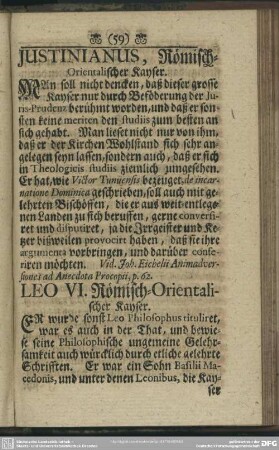 (59)
JUSTINIANUS, Römisch-
Orientalischer Kayser.
MAn soll nicht dencken, daß dieser grosse
Kayser nur durch Beföderung der Ju-
ris-Prudenz berühmt worden, und daß er son-
sten keine meriten den studiis zum besten an
sich gehabt. Man lieset nicht nur von ihm,
daß er der Kirchen Wohlstand sich sehr an-
gelegen seyn lassen, sondern auch, daß er sich
in Theologicis studiis ziemlich umgesehen.
Er hat, wie Victor Tununensis bezeuget, de incar-
natione Dominica geschrieben, soll auch mit ge-
lehrten Bischöffen, die er aus weit-entlege-
nen Landen zu sich beruffen, gerne conversi-
ret und disputiret, ja die Irrgeister und Ke-
tzer bißweilen provocirt haben, daß sie ihre
argumenta vorbringen, und darüber confe-
riren möchten. Vid. Joh. Eichelii Animadver-
siones ad Anecdota Procopii, p. 62.
LEO VI. Römisch-Orientali-
scher Kayser.
ER wurde sonst Leo Philosophus tituliret,
war es auch in der That, und bewie-
se seine Philosophische ungemeine Gelehr-
samkeit auch würcklich durch etliche gelehrte
Schrifften. Er war ein Sohn Basilii Ma-
cedonis, und unter denen Leonibus, die Kay-
ser